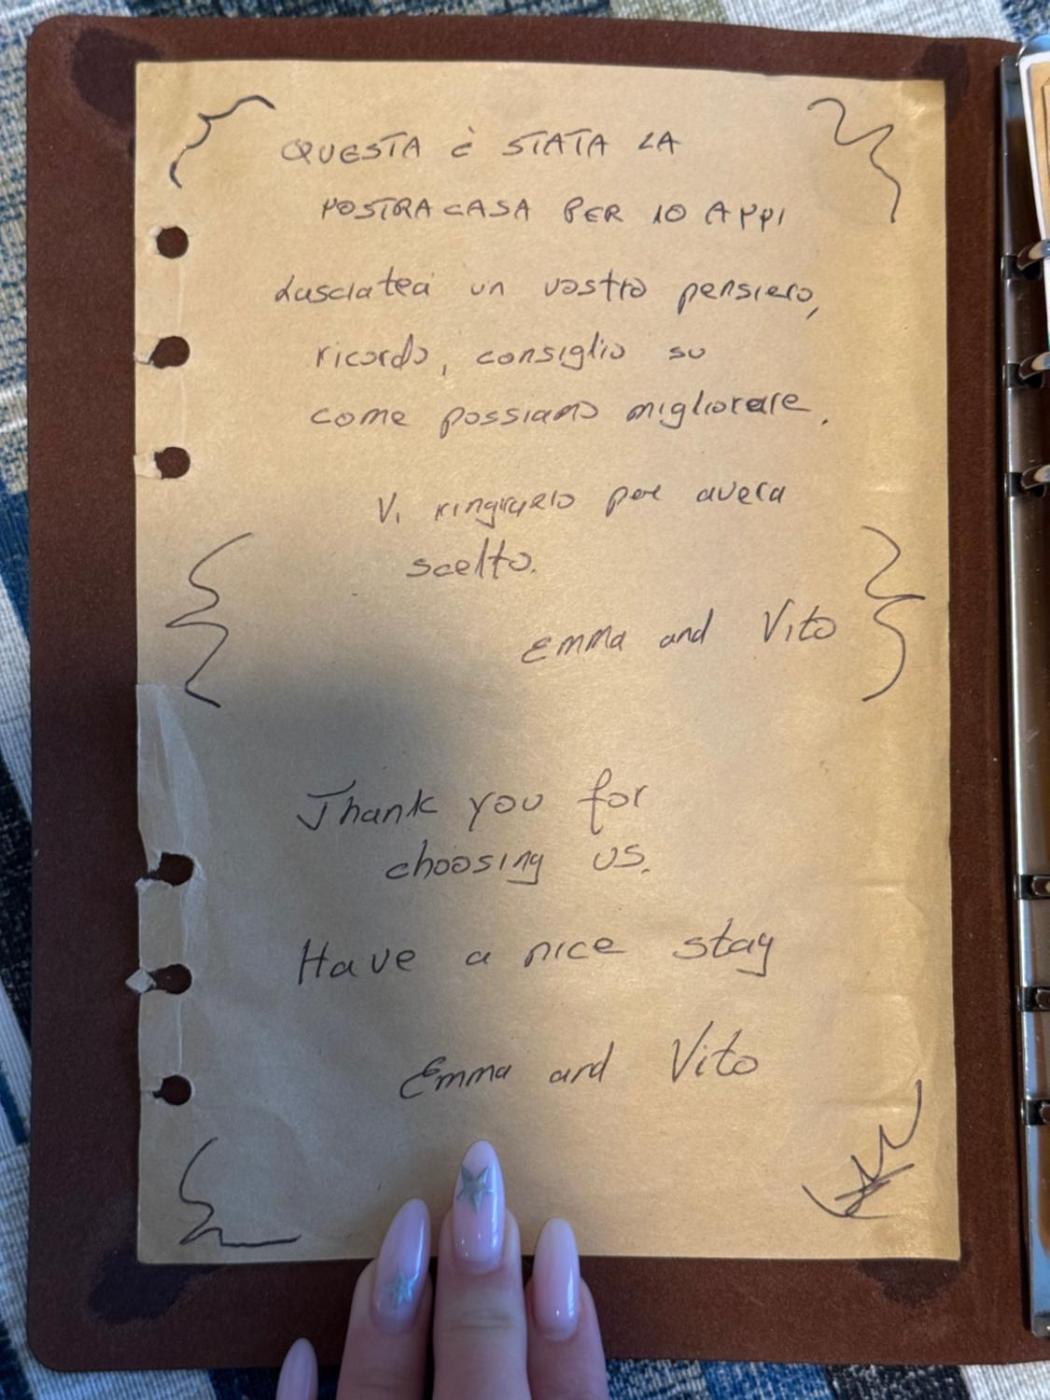 QUESTA è STATA LA
NOSTRA CASA PER 10 ANNI
Lasciateci un vostro pensiero,
ricordo, consiglio su
come possiamo migliorare.
Vi ringrazio per averci
scelto.
Emma and Vito
Thank you for
choosing us.
Have a nice stay
Emma and Vito